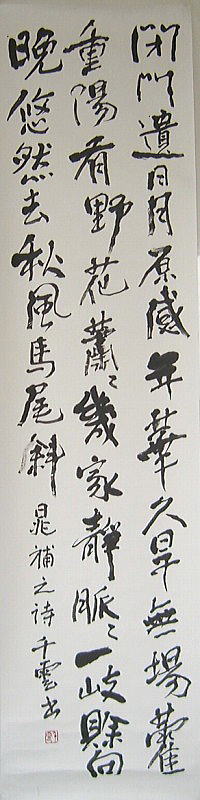 閉門遺日月原感年華久旱無場藿
重陽有野花蘭〻幾家靜脈〻一岐賒向
晚悠然去秋風馬尾斜
晁補之詩千雲書